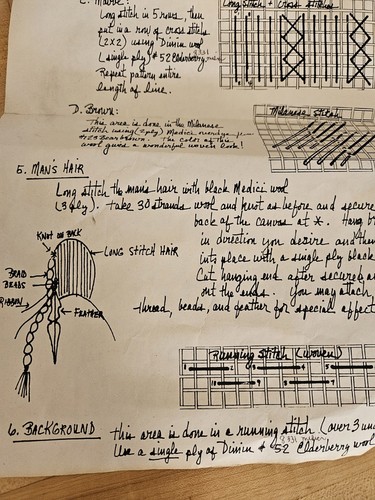 C. Mauve:
Long stitch in 5 rows, then
put in a row of cross stitch
(2x2) using Dimin wool
(single ply) # 52 Elderberry
Repeat pattern entire
length of line.
Long stitch + Cross stitches
D. Brown:
This area is done in the Milanese
stitch using (2 ply) Medici
wool gives a wonderful woven look!
Milanese Stitch
5. MAN'S HAIR
Long stitch the man's hair with black Medici wool
(3 ply). Take 30 strands wool and knot as before and secure
back of the canvas at X. Hang
in direction you desire and then
into place with a single ply black
Cut hanging end after secured
out the ends. You may attach
thread, beads, and feather for special effect
KNOT ON BACK
LONG STITCH HAIR
BRAID
BEADS
RIBBON
FEATHER
Running Stitch (woven)
1 2 3 4 5
10 9 8 7
6. BACKGROUND This area is done in a running stitch (over 3
Use a single ply of Dimin # 52 Elderberry wool